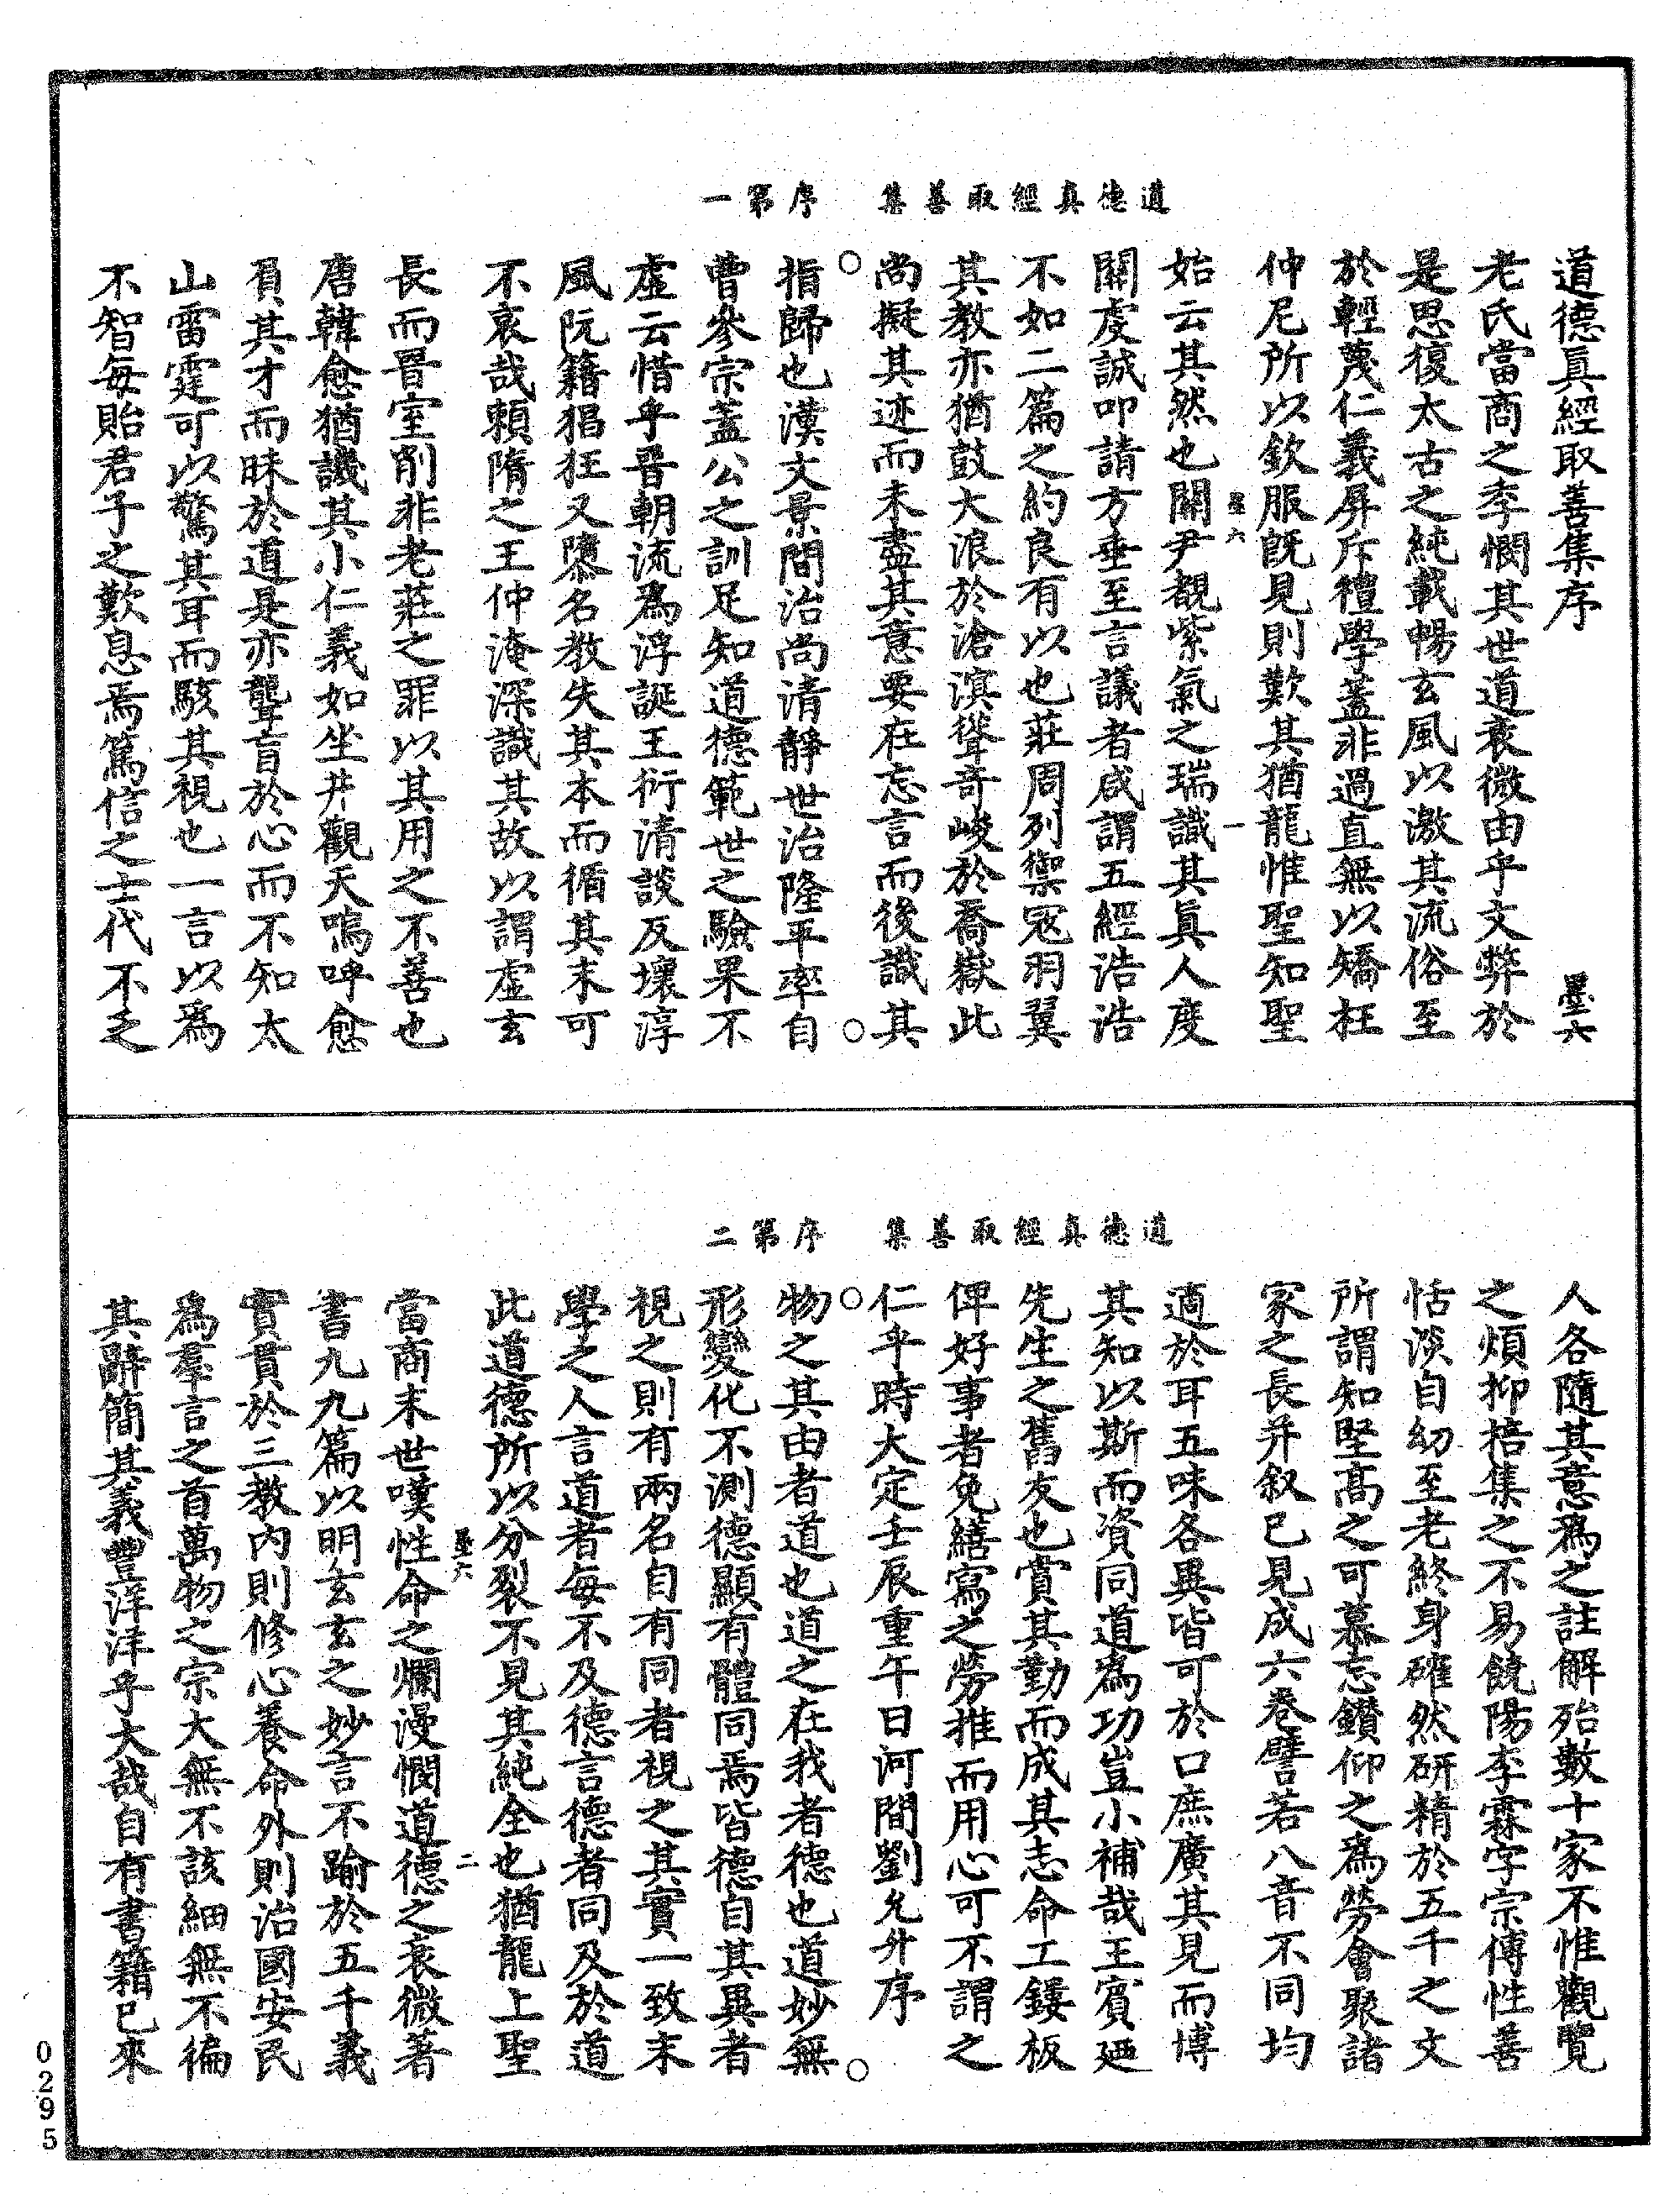 道德真經取善集　序第一
道德眞經取善集序　墨六
老氏當商之季憫其世道衰微由乎文弊於
是思復太古之純載暢玄風以激其流俗至
於輕蔑仁義屏斥禮學蓋非過直無以矯枉
仲尼所以欽服旣見則歎其猶龍惟聖知聖
墨六　一
始云其然也關尹覩紫氣之瑞識其眞人度
關虔誠叩請方垂至言議者咸謂五經浩浩
不如二篇之約良有以也莊周列禦寇羽翼
其教亦猶鼓大浪於滄溟聳奇峻於喬嶽此
尚擬其迹而未盡其意要在忘言而後識其
指歸也漢文景間治尚清靜世治隆平率自
曹參宗蓋公之訓足知道德範世之驗果不
虛云惜乎晉朝流爲浮誕王衍清談反壞淳
風阮籍猖狂又隳名教失其本而循其末可
不哀哉賴隋之王仲淹深識其故以謂虛玄
長而晉室削非老莊之罪以其用之不善也
唐韓愈猶譏其小仁義如坐井觀天嗚呼愈
負其才而昧於道是亦聾盲於心而不知太
山雷霆可以驚其耳而駭其視也一言以爲
不智每貽君子之歎息焉篤信之士代不乏
道德真經取善集　序第二
人各隨其意爲之註解殆數十家不惟觀覽
之煩抑掊集之不易饒陽李霖字宗傅性善
恬淡自幼至老終身確然研精於五千之文
所謂知堅高之可慕忘鑽仰之爲勞會聚諸
家之長并叙已見成六卷譬若八音不同均
適於耳五味各異皆可於口庶廣其見而博
其知以斯而資同道爲功豈小補哉王賓廼
先生之舊友也賞其勤而成其志命工鏤板
俾好事者免繕寫之勞推而用心可不謂之
仁乎時大定壬辰重午日河間劉允升序
物之其由者道也道之在我者德也道妙無
形變化不測德顯有體同焉皆德自其異者
視之則有兩名自有同者視之其實一致末
學之人言道者每不及德言德者同及於道
此道德所以分裂不見其純全也猶龍上聖
墨六　二
當商末世嘆性命之爛漫憫道德之衰微著
書九九篇以明玄玄之妙言不踰於五千義
實貫於三教內則修心養命外則治國安民
為羣言之首萬物之宗大無不該細無不徧
其辭簡其義豐洋洋乎大哉自有書籍已來
0295